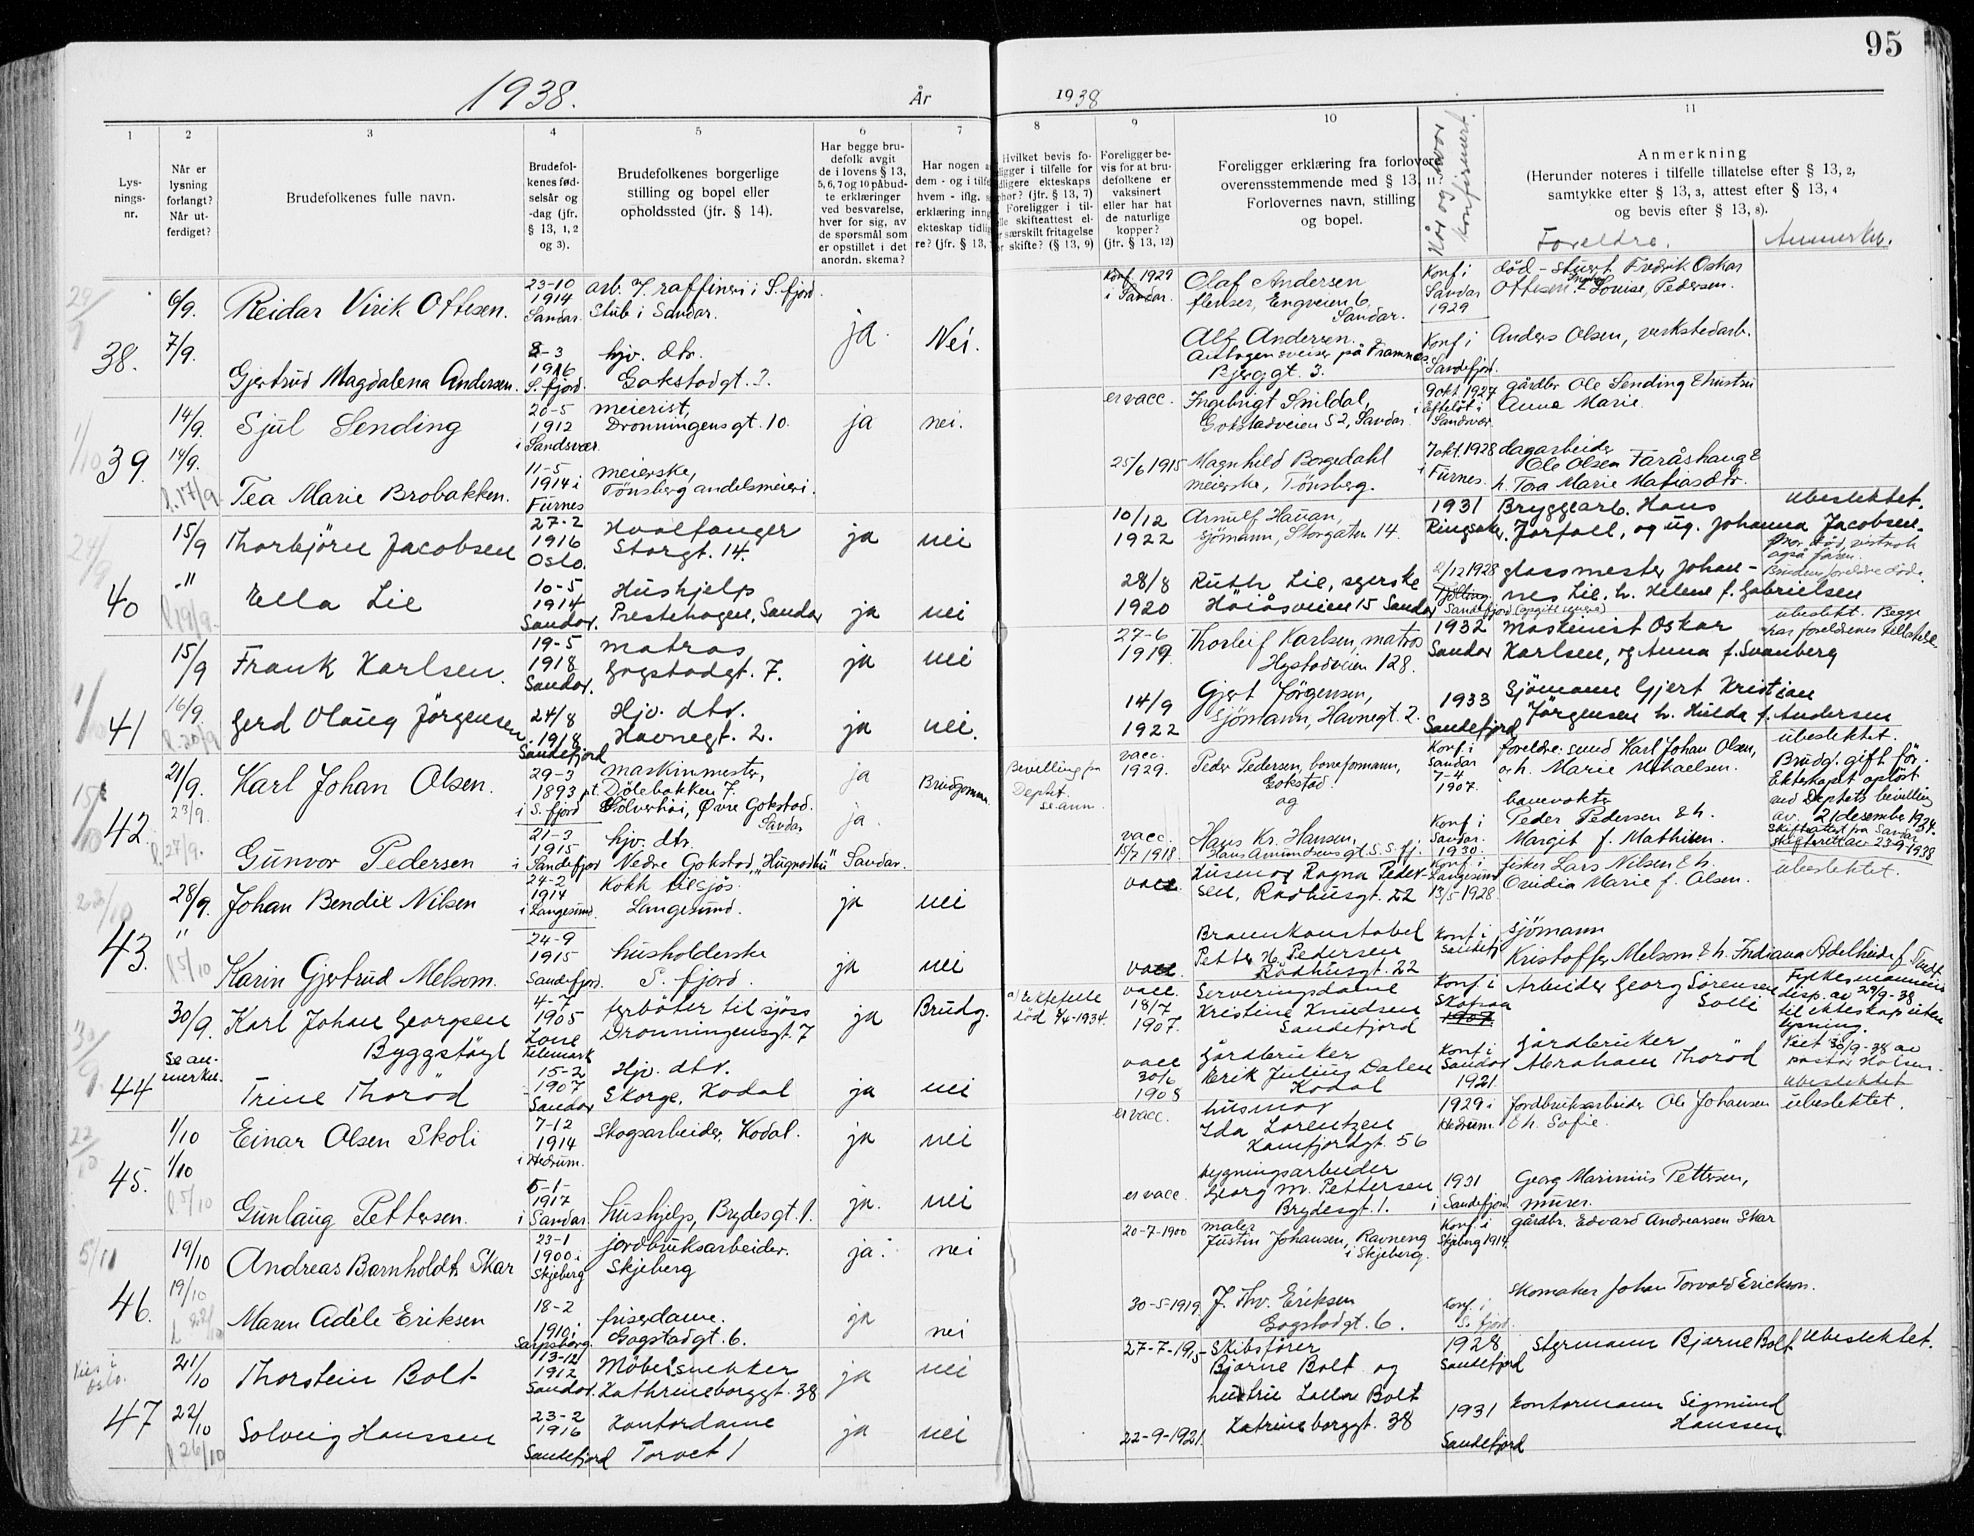 95
1938.
År
1938
1
2
3
4
5
6
7
8
9
10
11
Lys-
nings-
nr.
Når er
lysning
forlangt?
Når ut-
ferdiget?
Brudefolkenes fulle navn.
Brudefol-
kenes fød-
selsår og
-dag (jfr.
§ 13, 1, 2
og 3).
Brudefolkenes borgerlige
stilling og bopel eller
opholdssted (jfr. § 14).
Har begge bru-
defolk avgit
de i lovens § 13,
5, 6, 7 og 10 påbud-
te erklæringer
ved besvarelse,
hver for sig, av
de spørsmål som
er opstillet i det
anordn. skema?
Har nogen a
dem - og i tilfe
hvem - iflg. s
erklæring inng
ekteskap tidlig
re? (jfr. § 13,
Hvilket bevis fo-
ligger i tilfelle for
dligere ekteskaps
phør? (jfr. § 13, 7)
Foreligger i til-
lle skifteattest el-
r særskilt fritagelse
r skifte? (§ 13, 9)
Foreligger be-
vis for at bru-
defolkene er
vaksinert
eller har hat
de naturlige
kopper?
(jfr. § 13, 12)
Foreligger erklæring fra forlovere
overensstemmende med § 13, 11?
Forlovernes navn, stilling
og bopel.
Når og hvor
konfirmert.
Anmerkning
(Herunder noteres i tilfelle tillatelse efter § 13, 2,
samtykke efter § 13, 3, attest efter § 13, 4
og bevis efter § 13, 8).
Foreldre.
Anmerkn.
38.
6/9.
7/9.
Reidar Virik Ottesen.
23-10
1914
Sandar.
arb. i raffineri i S. fjord.
Stub i Sandar.
ja.
Nei.
Konf 1929
i Sandar.
Olaf Andersen
flenser, Engveien 6.
Sandar.
Konf i
Sandar
1929
død - stuert Fredrik Oskar
Ottesen, Louise, Pedersen.
Gjertrud Magdalena Andersen.
8-3
1916
S. fjord.
hjv. dtr.
Gokstadgt. 3.
Alf Andersen.
Autogensveiser på Framnes
Bjerggt. 3
Konf i
Sandefjord.
Anders Olsen, verkstedarb.
39.
14/9.
Sjul Sending
20-5
1912
i Sandsvær
meierist,
Dronningensgt. 10.
ja
nei.
er vacc.
Ingebrigt Snildal,
Gokstadveien 52, Sandar
9 okt 1927
i Efteløt i
Sandsvær
gårdbr Ole Sending & hustru
Anna Marie
14/9.
l. 17/9
Tea Marie Brobakken.
11-5
1914 i
Furnes
meierske,
Tønsberg andelsmeieri.
25/6 1915
Magnhild Borgedahl
meierske, Tønsberg.
7 okt. 1928
i Furnes.
dagarbeider
Ole Olsen Faråshaug &
h. Tora Marie Matiasdtr.
40
15/9
Thorbjörn Jacobsen
27-2
1916
Oslo.
Hvalfanger
Storgt. 14.
ja
nei
10/12
1922
Arnulf Hauan,
Sjömann, Storgaten 14.
1931
Ringsaker.
Bryggearb. Hans
Jarfall, og ug. Johanna Jacobsen.
Ubeslektet.
Mor død, visstnok
også faren.
"
l. 19/9.
Ella Lie
10-5
1914
Sandar.
Hushjelp
Prestehagen, Sandar
ja
nei
28/8
1920
Ruth Lie, syerske
Höiåsveien 15 Sandar
2/12 1928
Tjölling.
Sandefjord (opgitt senere)
glassmester Johan-
nes Lie, h. Helene f. Gabrielsen
Brudens foreldre døde.
41
15/9
Frank Karlsen.
19-5
1918
Sandar.
matros
Gogstadgt. 7.
ja
nei
27-6
1919
Thorleif Karlsen, matros
Hystadveien 128.
1932
Sandar
maskinist Oskar
Karlsen, og Anna f. Svanberg
ubeslekt. Begge
har foreldrenes tillatelse
16/9.
l. 20/9
Gerd Olaug Jörgensen
24/8
1918
Sandefjord
Hjv. dtr.
Havnegt. 2.
ja
nei.
14/9
1922
Gjert Jörgensen,
Sjömann, Havnegt. 2.
1933
Sandefjord
Sjömann Gjert Kristian
Jörgensen h. Hilda f. Andersen
ubeslektet.
42.
21/9.
Karl Johan Olsen.
29-3
1893
i S. fjord
maskinmester,
pt. Dölebakken 7.
Solverhöi, Övre Gokstad.
Sandar
ja
Brudgommen
Bevilling fra
Deptet.
se anm.
vacc.
1929.
Peder Pedersen, baneformann,
Gokstad
og
Konf. i
Sandar
7-4
1907.
foreldre: smed Karl Johan Olsen,
og h. Marie Mikaelsen.
Brudg. gift för.
Ekteskapet oplöst
ved Deptets bevilling
av 21 desember 1934.
Skifteattest fra Sandar
skifterett av 23-9-1938
23/9.
l. 27/9.
Gunvor Pedersen
21-3
1915
i Sandefjord
hjv. dtr.
Nedre Gokstad, "Hugnadbu" Sandar.
ja.
vacc.
15/7 1918.
Hans Kr. Hansen,
Hans Amundsensgt. 5. S. fj.
Konf. i
Sandar.
1930.
banevokter
Peder Pedersen & h.
Margit f. Mathisen.
43.
28/9.
Johan Bendix Nilsen
24-2
1914
i Langesund.
Kokk tilsjøs.
Langesund.
ja
nei
vacc.
Husmor Ragna Peder-
sen, Rådhusgt. 22
Konf. i
Langesund
13/5-1928.
fisker Lars Nilsen & h.
Ovidia Marie f. Olsen.
ubeslektet.
"
l 5/10
Karin Gjertrud Melsom.
24-9
1915
Sandefjord.
husholderske
S. fjord.
ja
nei
vacc.
Brannkonstabel
Petter H. Pedersen
Rådhusgt. 22
Konf. i
Sandefj
Sjömann
Kristoffer Melsom & h. Indiana Adelheid f. Tvedt.
44
30/9.
se an-
merkn.
Karl Johan Georgsen
Byggstöyl
4-7
1905
Telemark
fyrböter til sjöss
Dronningensgt. 7
ja
Brudg.
a) Ektefelle
död 4/4-1934.
vacc.
18/7
1907.
Serveringsdame
Kristine Knudsen
Sandefjord
Konf. i
Skotfoss
1907
Arbeider Georg Sörensen
Solli
Fylkesmannens
disp. av 29/9-38
til ekteskap uten
lysning.
Viet 30/9-38 av
pastor Holm.
ubeslektet
Trine Thoröd
15-2
1907
Sandar
Hjv. dtr.
Skorge, Kodal
ja
nei
vacc
30/6
1908
Gårdbruker
Erik Julius Dalen
Kodal
Konf i
Sandar
1921
gårdbruker
Abraham Thoröd
45.
1/10
Einar Olsen Skoli
7-12
1914
i Hedrum.
Skogsarbeider, Kodal.
ja
nei
er vacc.
husmor
Ida Lorentzen
Kamfjordgt. 56
1929 i
Hedrum.
Jordbruksarbeider Ole Johansen
& h. Sofie.
ubeslektet.
1/10
l 5/10
Gunlaug Pettersen.
5-1-
1917
i Sandar.
hushjelp, Brydesgt. 1.
ja.
nei
er vacc.
bygningsarbeider
Georg M. Pettersen
Brydesgt. 1.
1931
i Sandefjord.
Georg Marinius Pettersen,
murer.
46.
5/11
19/10
Andreas Barnholdt Skar
23-1
1900 i
Skjeberg
jordbruksarbeider.
Skjeberg
ja.
nei
20-7-1900
maler
Justin Johansen, Ravneng
i Skjeberg.
Konf. i
Skjeberg 1914.
gårdbr. Edvard Andreassen Skar
19/10
l 22/10
Maren Adéle Eriksen
18-2
1910 i
Sarpsborg.
friserdame.
Gogstadgt. 6.
ja
nei
30-5-1919.
J. Thv. Eriksen
Gogstadgt. 6.
Konf. i
S. fjord.
Skomaker Johan Torvald Erickson.
47
Viet i
Oslo.
21/10
Thorstein Bolt
13-12
1912
Sandar.
Möbelsnekker
Kathrineborggt. 38
ja
nei
27-7-1915
Skibsförer
Bjarne Bolt og
hustru Lalla Bolt
Katrineborggt. 38
1928
Sandefjord
Styrmann Bjarne Bolt
Ubeslektet.
22/10
l 26/10
Solveig Hanssen
23-2
1916
Sandefjord
Kontordame
Torvet 1
ja
nei
22-9-1921
1931
Sandefjord
Kontormann Sigmund
Hanssen